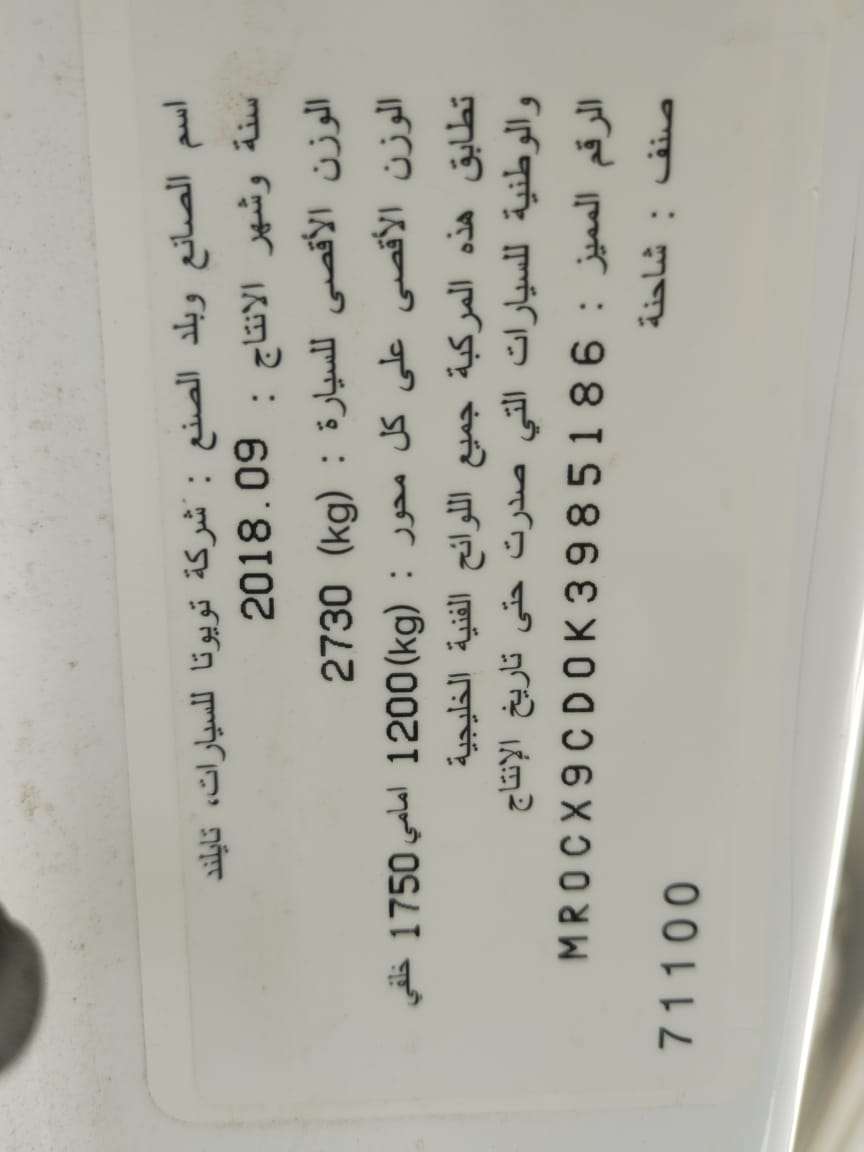 اسم الصانع وبلد الصنع : شركة تويوتا للسيارات، تايلند
سنة وشهر الانتاج : 2018.09
الوزن الأقصى للسيارة : (kg) 2730
الوزن الأقصى على كل محور : (kg)1200 امامي 1750 خلفي
تطابق هذه المركبة جميع اللوائح الفنية الخليجية
والوطنية للسيارات التي صدرت حتى تاريخ الإنتاج
الرقم المميز : MR0CX9CD0K3985186
صنف : شاحنة
71100